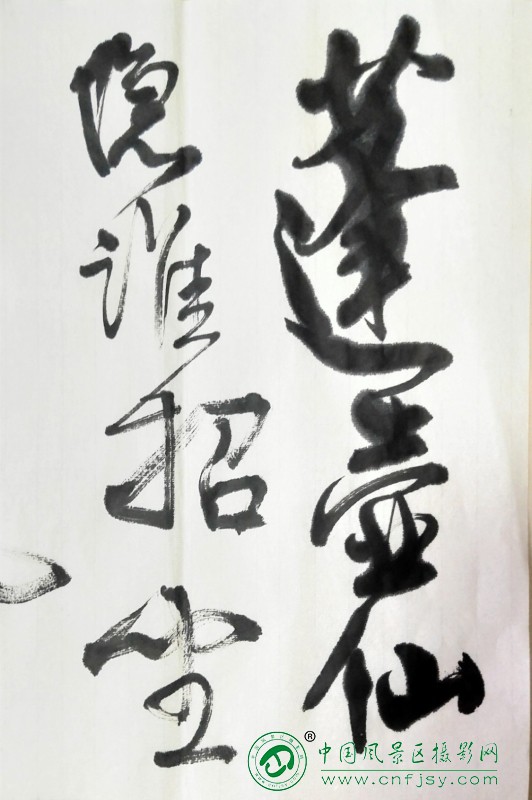 蓬壺仙
隐谁招
® 中国风景区摄影网
www.cnfjsy.com